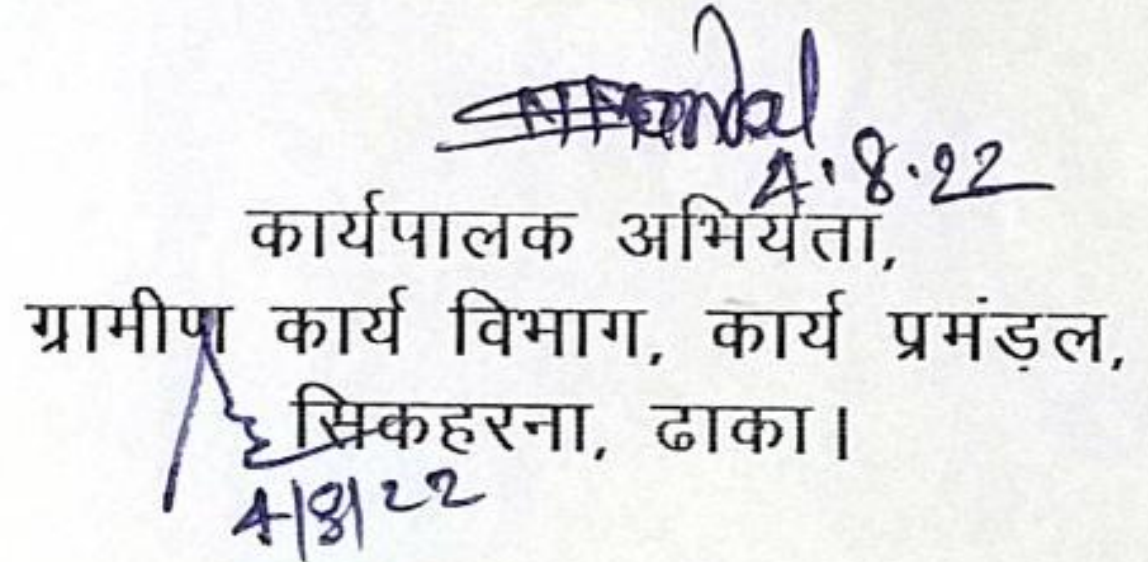 4.8.22
कार्यपालक अभियंता,
ग्रामीण कार्य विभाग, कार्य प्रमंड़ल,
सिकहरना, ढाका।
4/8/22